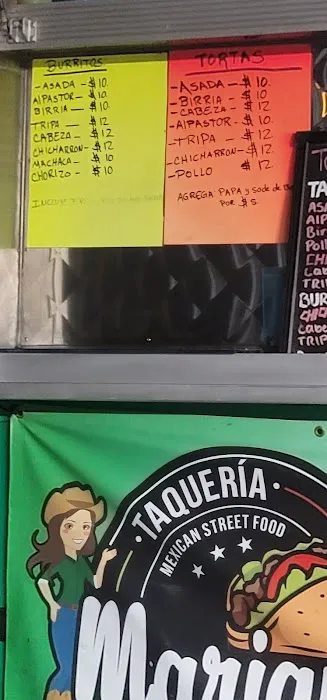 BURRITOS
- ASADA - $ 10.
AlPASTOR - $ 10
BIRRIA - $ 10.
TRIPA - $ 12
CABEZA - $ 12
CHICHARRON - $ 12
MACHACA - $ 10
CHORIZO - $ 10
TORTAS
- ASADA - $ 10.
- BIRRIA - $ 10
- CABEZA - $ 12
- AlPASTOR - $ 10.
- TRIPA - $ 12
- CHICHARRON - $ 12.
- POLLO $ 12
AGREGA PAPA y soda de
POR $ 5
TA
ASA
AlP
Bir
Poll
CHI
Cab
TRI
BUR
CHIC
Cabe
TRIP
TAQUERÍA
MEXICAN STREET FOOD
Maria